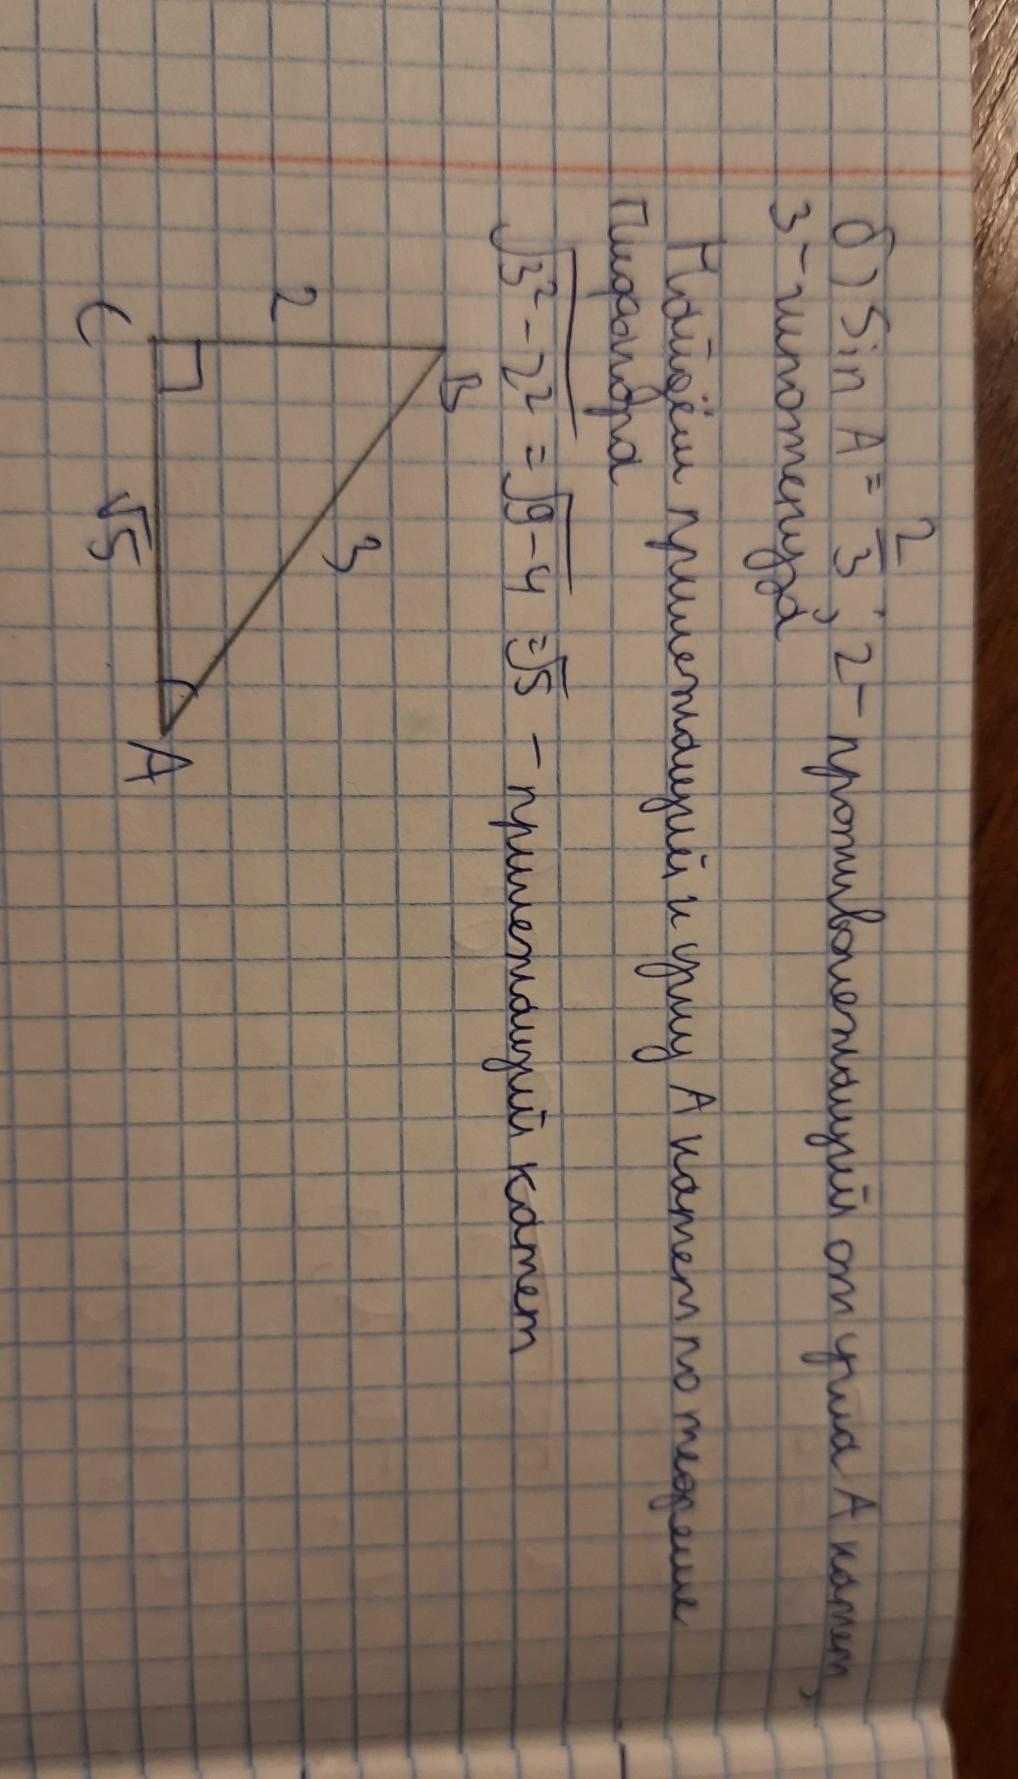 б) Sin A = 2/3; 2 - противолежащий от угла A катет,
3 - гипотенуза
Найдём прилежащий к углу A катет по теореме
Пифагора
√3² - 2² = √9 - 4 = √5 - прилежащий катет
B
2
3
C
√5
A